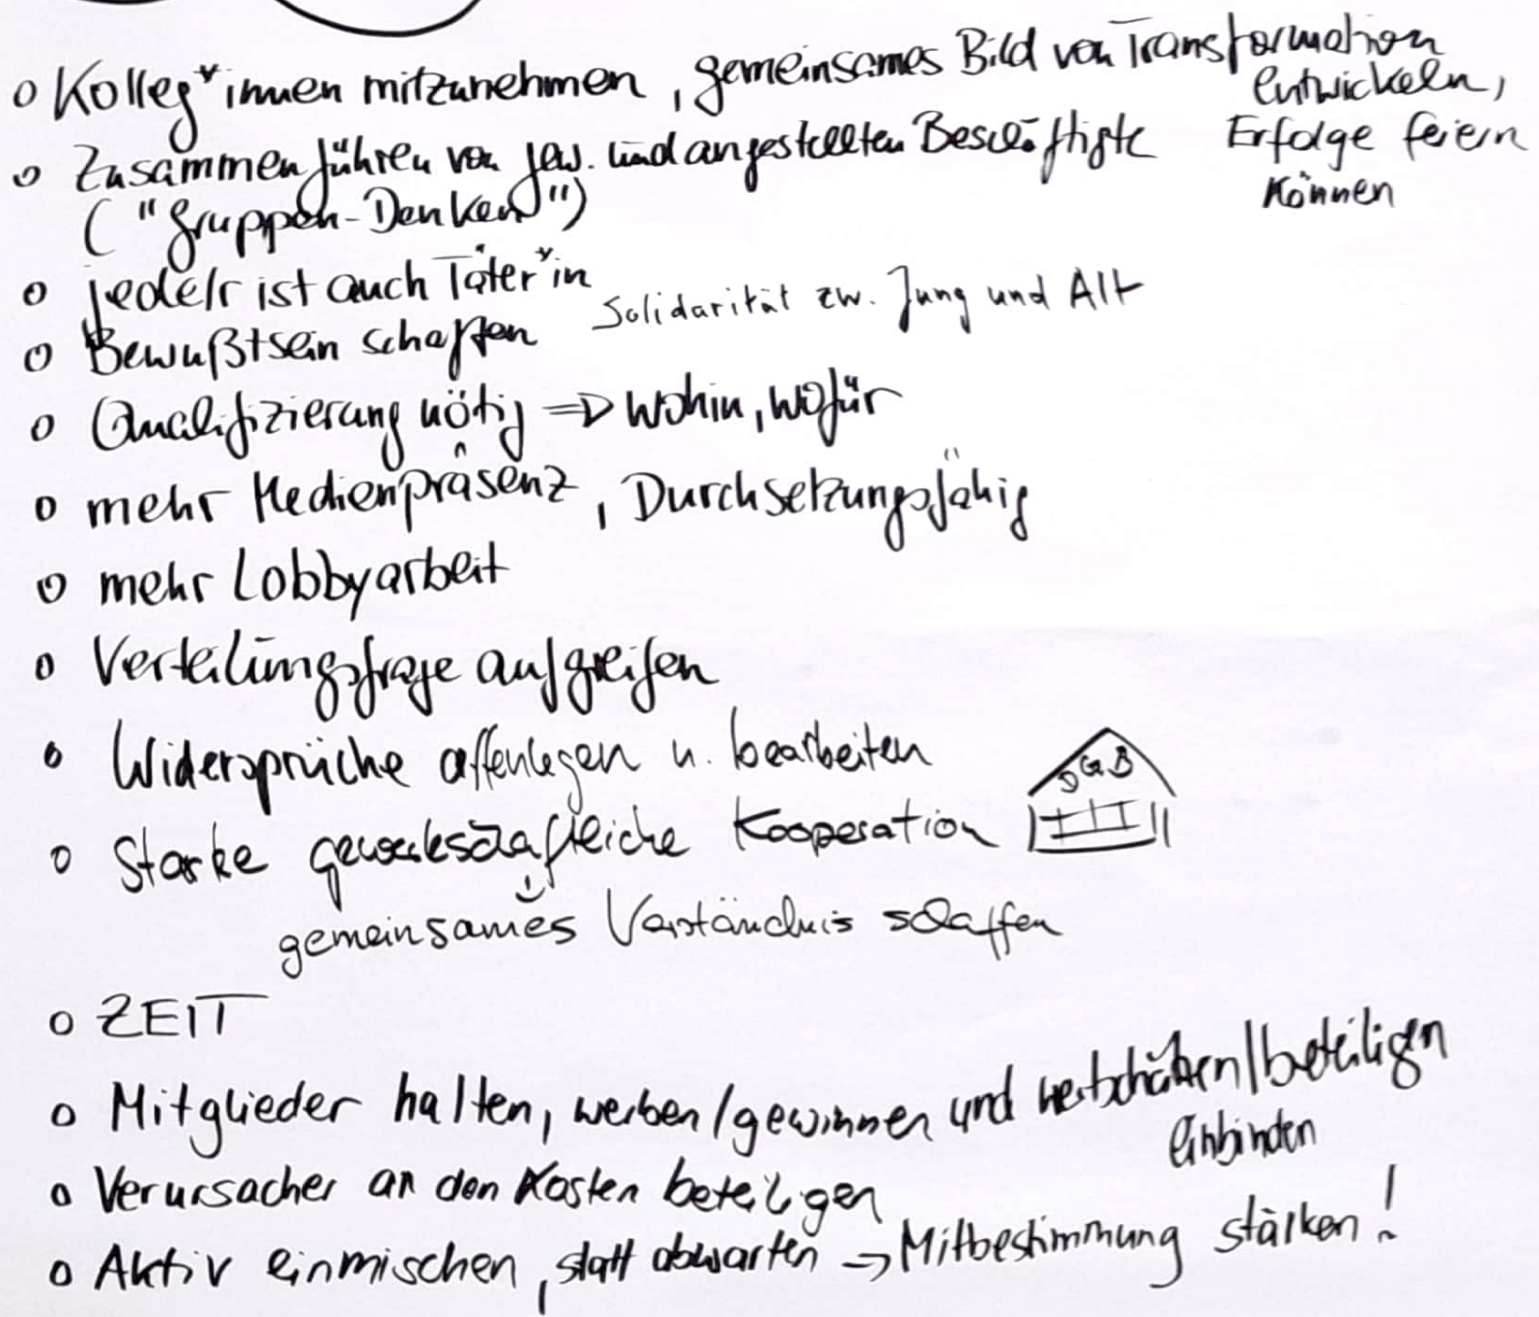 o Kolleg*innen mitzunehmen, gemeinsames Bild von Transformation
entwickeln,
Erfolge feiern
können
o Zusammenführen von gew. und angestellten Beschäftigte
("Gruppen-Denken")
o jede/r ist auch Täter*in
Solidarität zw. Jung und Alt
o Bewußtsein schaffen
o Qualifizierung nötig => Wohin, wofür
o mehr Medienpräsenz, Durchsetzungsfähig
o mehr Lobbyarbeit
o Verteilungsfrage aufgreifen
o Widersprüche offenlegen u. bearbeiten
DGB
o Starke gewerkschaftliche Kooperation
gemeinsames Verständnis schaffen
o ZEIT
o Mitglieder halten, werben/gewinnen und wertschätzen/beteiligen
einbinden
o Verursacher an den Kosten beteiligen
o Aktiv einmischen, statt abwarten → Mitbestimmung stärken!